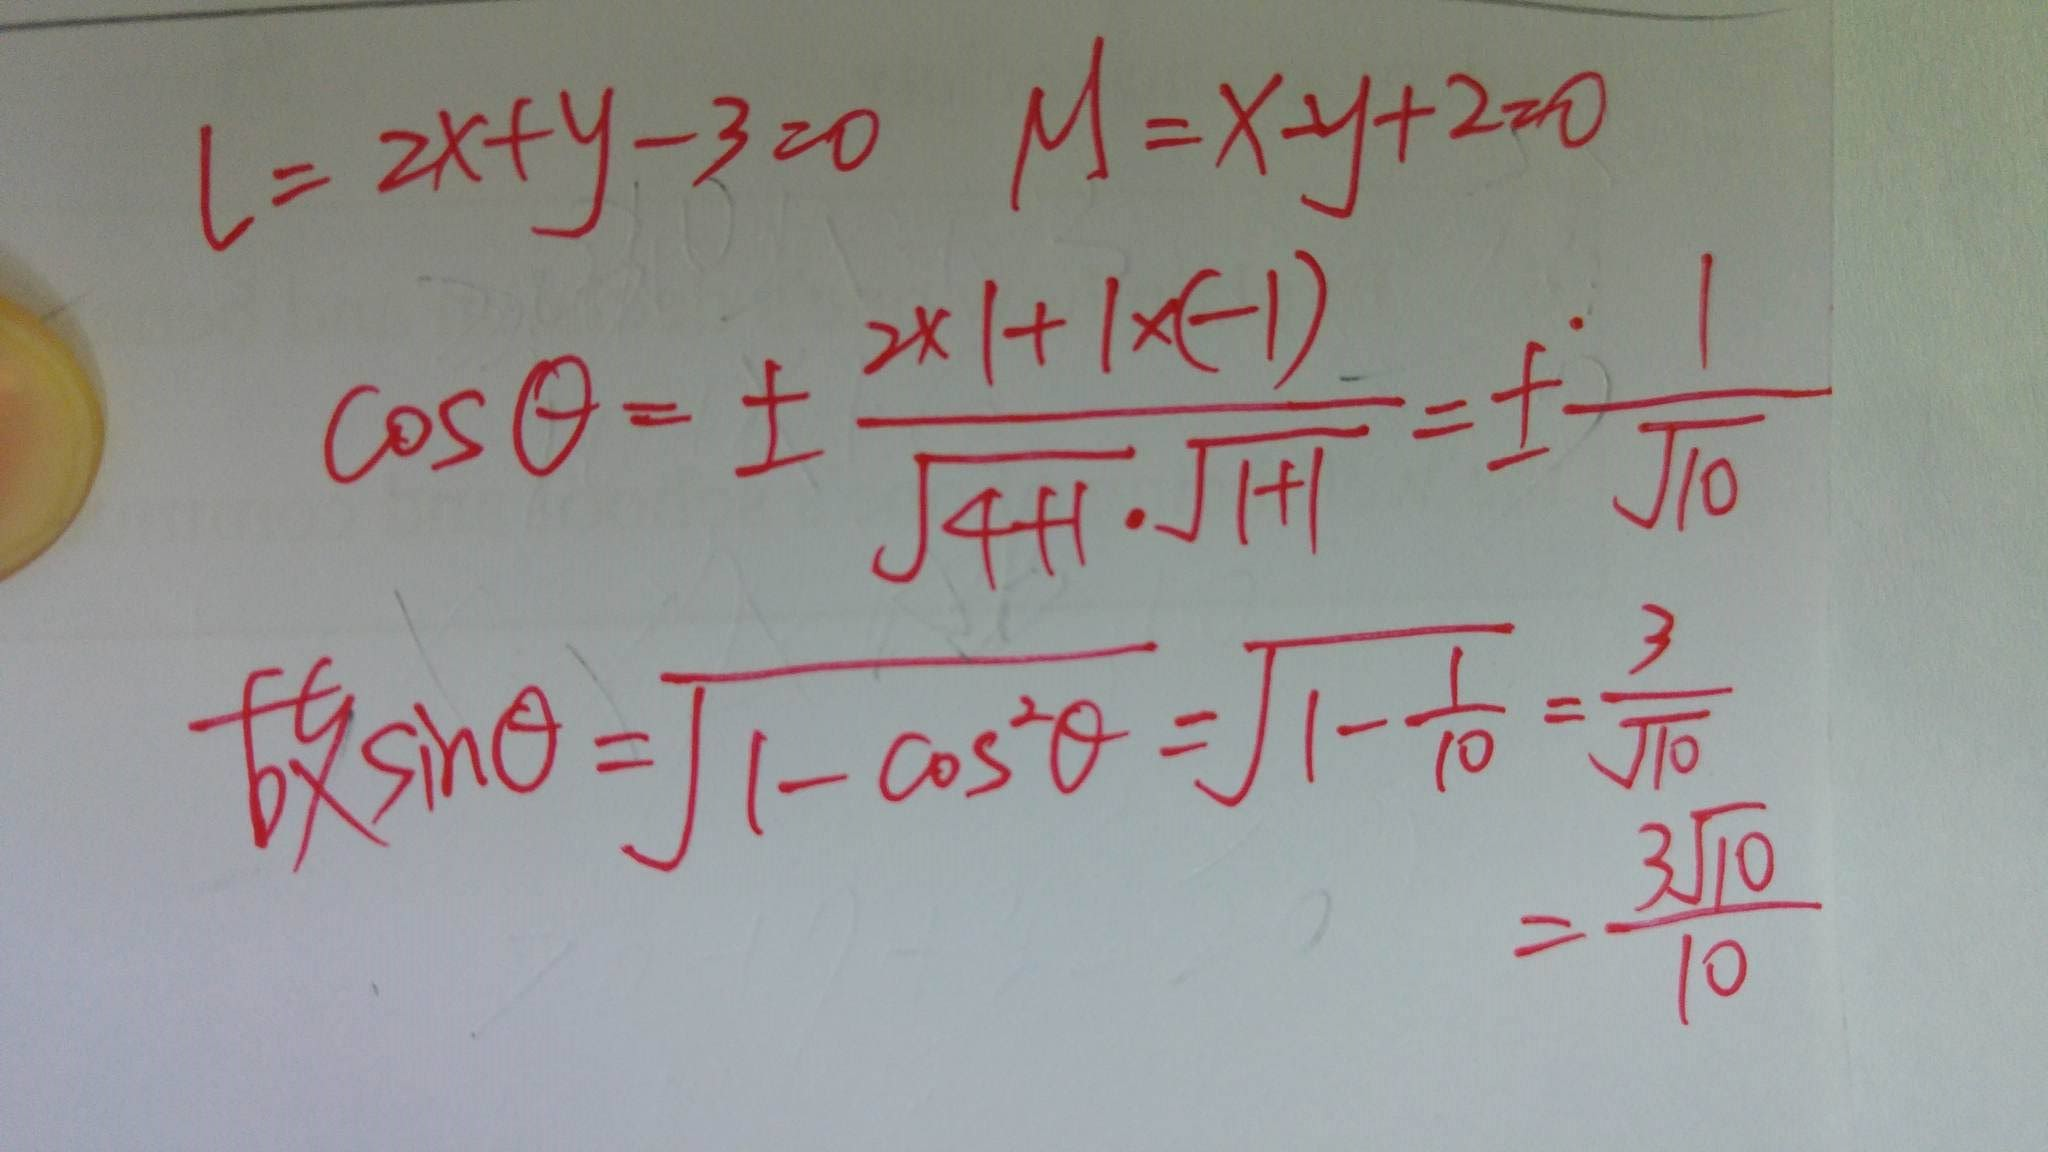 L = 2x+y-3=0 M = x-y+2=0
cosθ = ± (2×1+1×(-1))/(√(4+1)·√(1+1)) = ± 1/√10
故 sinθ = √(1-cos²θ) = √(1-1/10) = 3/√10
= 3√10/10